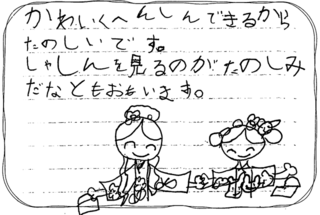 かわいくへんしんできるから
たのしいです。
しゃしんを見るのがたのしみ
だなともおもいます。